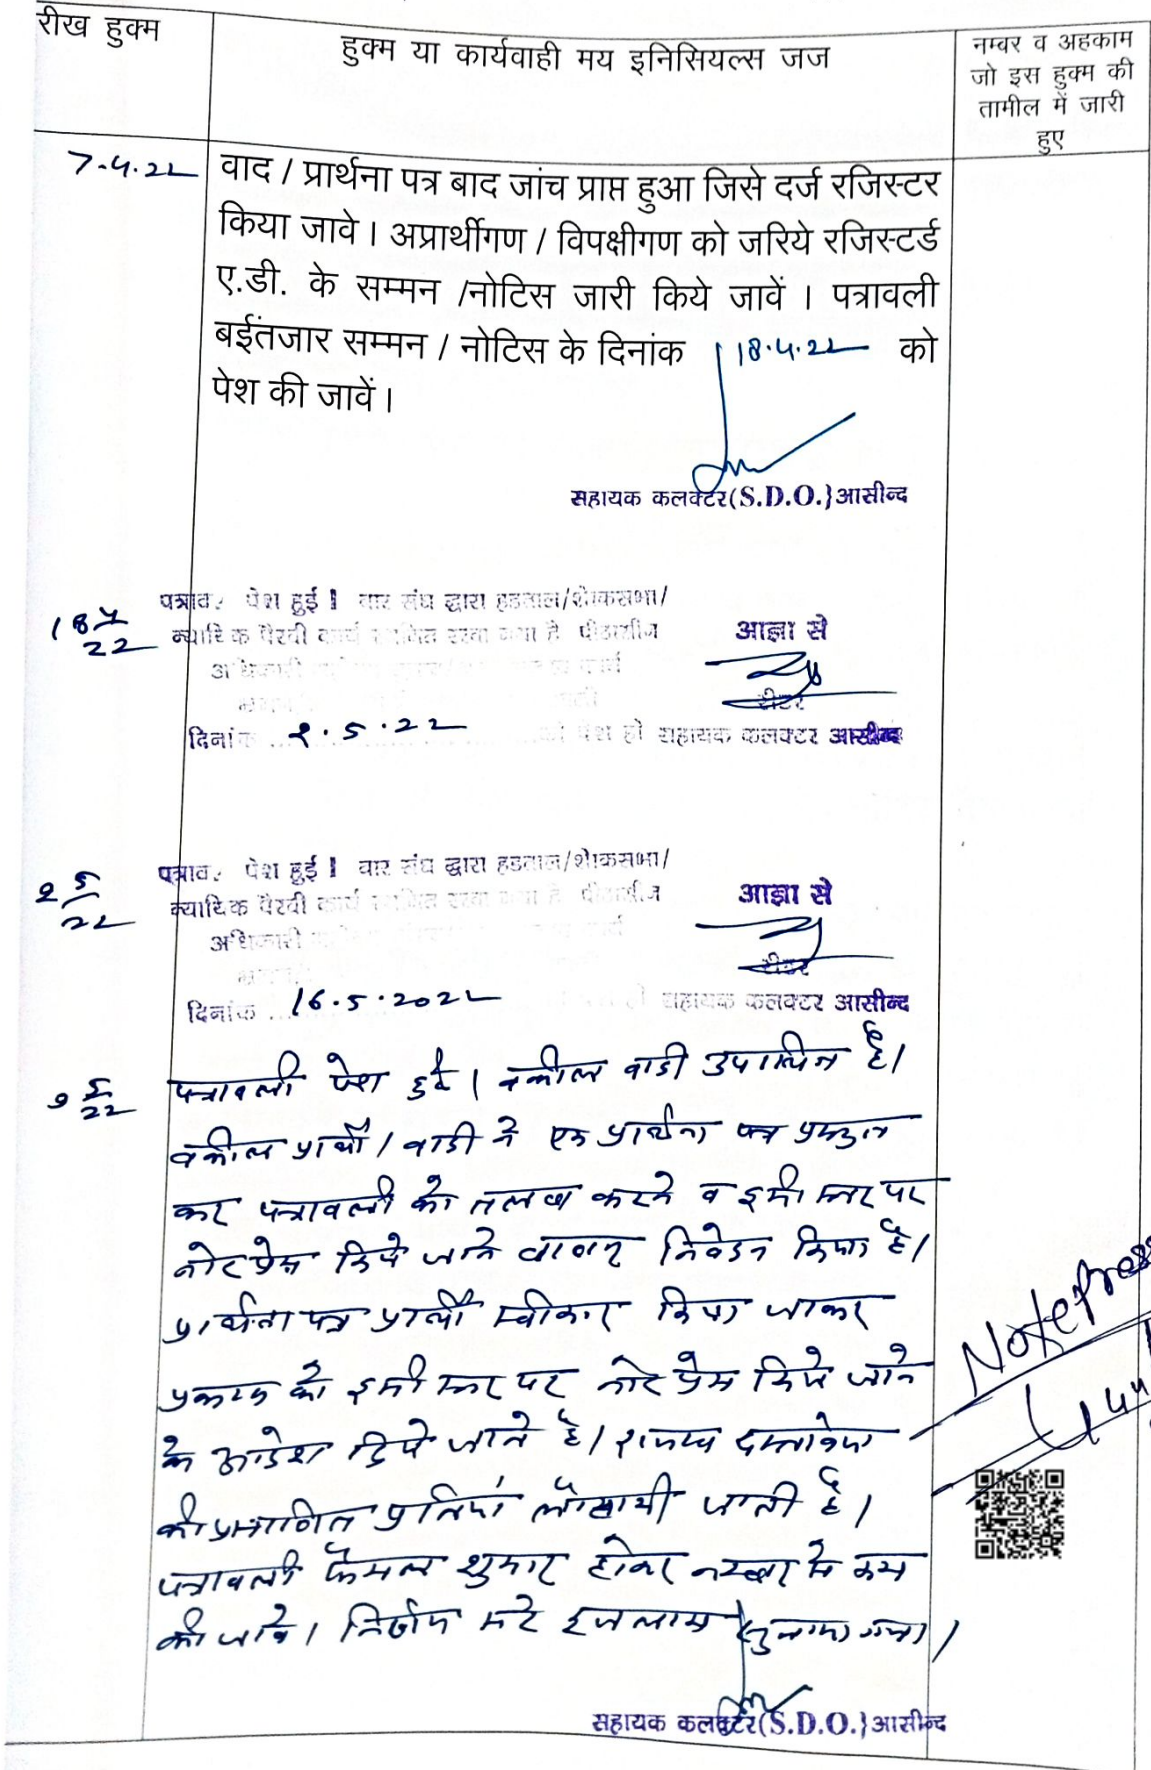 रीख हुक्म
हुक्म या कार्यवाही मय इनिसियल्स जज
नम्बर व अहकाम
जो इस हुक्म की
तामील में जारी
हुए
7-4-22
वाद / प्रार्थना पत्र बाद जांच प्राप्त हुआ जिसे दर्ज रजिस्टर
किया जावे । अप्रार्थीगण / विपक्षीगण को जरिये रजिस्टर्ड
ए.डी. के सम्मन /नोटिस जारी किये जावें । पत्रावली
बईंतजार सम्मन / नोटिस के दिनांक 18.4.22 को
पेश की जावें ।
सहायक कलक्टर(S.D.O.)आसीन्द
18 4/22
पत्राव. पेश हुई । बार संघ द्वारा हडताल/शोकसभा/
न्यायिक पैरवी कार्य स्थगित रखा गया है पीठासीन
अधिकारी कार्य
आज्ञा से
रीडर
दिनांक 2.5.22 को पेश हो सहायक कलक्टर आसीन्द
2 5/22
पत्राव. पेश हुई । बार संघ द्वारा हडताल/शोकसभा/
न्यायिक पैरवी कार्य स्थगित रखा गया है पीठासीन
अधिकारी कार्य
आज्ञा से
रीडर
दिनांक 16.5.2022 हो सहायक कलक्टर आसीन्द
9 5/22
पत्रावली पेश हुई । वकील वादी उपस्थित है।
वकील प्रार्थी / वादी ने एक प्रार्थना पत्र प्रस्तुत
कर पत्रावली को तलब करने व इसी स्तर पर
नोट प्रेस किये जाने बाबत् निवेदन किया है।
प्रार्थना पत्र प्रार्थी स्वीकार किया जाकर
प्रकरण को इसी स्तर पर नोट प्रेस किये जाने
के आदेश दिये जाते है। राजस्व दस्तावेज
की प्रमाणित प्रतियां लौटायी जाती है।
पत्रावली फैसल शुमार होकर नम्बर से कम
की जावे। निर्णय सरे इजलास सुनाया गया।
Notepress
सहायक कलक्टर(S.D.O.)आसीन्द